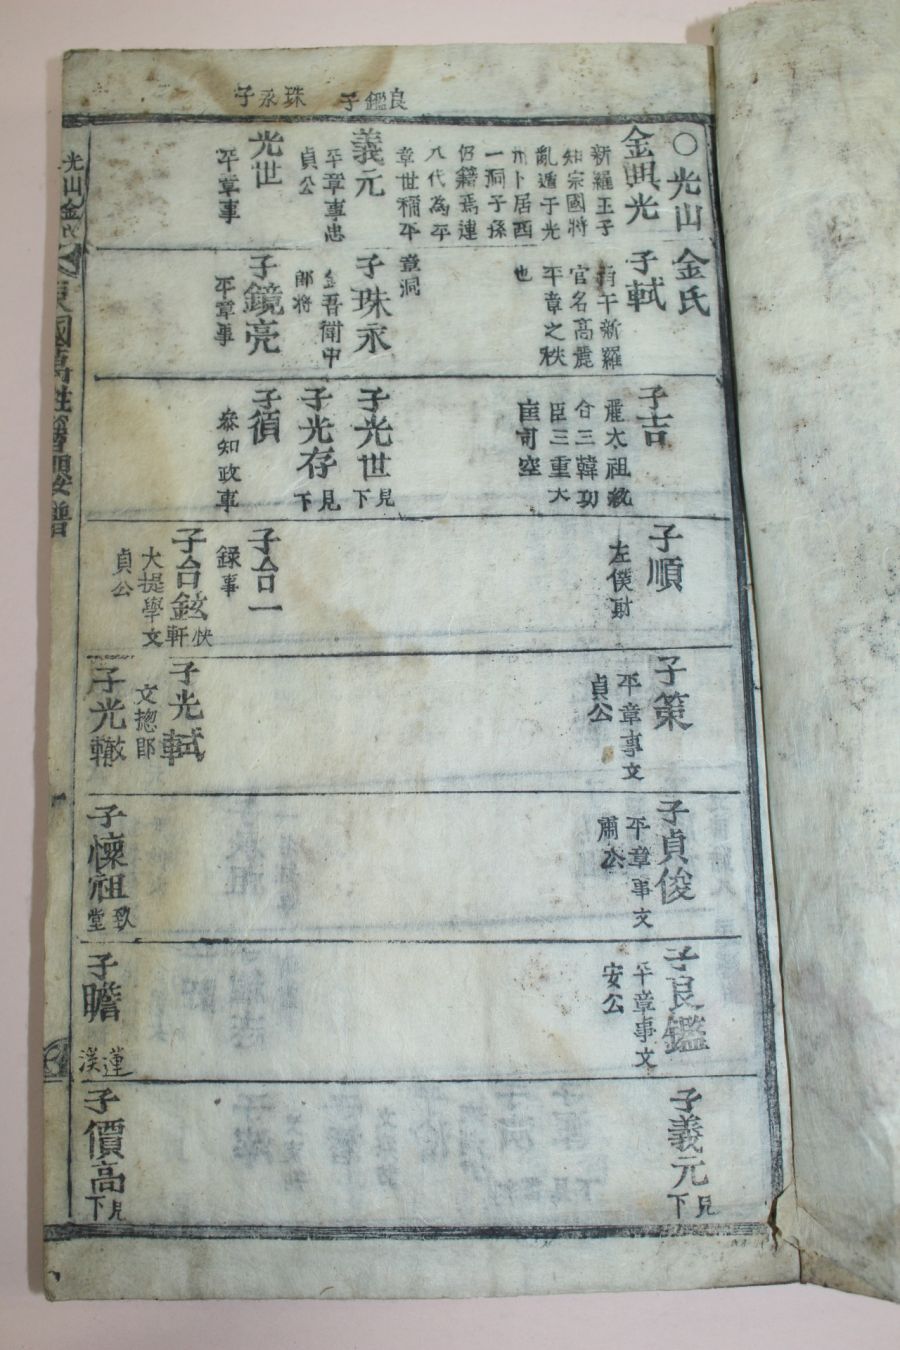 良鑑子
珠永子
○光山金氏
金興光
新羅王子
知宗國將
亂遁于光
州卜居西
一洞子孫
仍籍焉連
八代為平
章世稱平
章洞
義元
平章事忠
貞公
光世
平章事
子軾
角干新羅
官名高麗
平章之秩
也
子珠永
金吾衛中
郎将
子鏡亮
平章事
子吉
麗太祖
合三韓功
臣三重大
匡司空
子光世見下
子光存見下
子禎
叅知政事
子順
左僕射
子台一
録事
子台鉉快軒
大提學文
貞公
子策
平章事文
貞公
子光軾
文摠郎
子光轍
子貞俊
平章事文
肅公
子懷祖
堂
子良鑑
平章事文
安公
子瞻
蓮渼
子義元見下
子價高見下
光山金氏
東國萬姓
譜